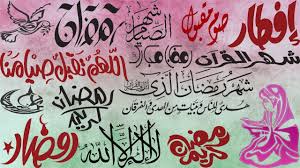 إفطار
صوم مقبول
شهر الصيام
رمضان
شهر القرآن
رمضان مبارك
اللهم تقبل صيامنا
شهر رمضان الذي
هدى للناس وبينات من الهدى والفرقان
رمضان كريم
رمضان كريم
لا إله إلا الله
رمضان